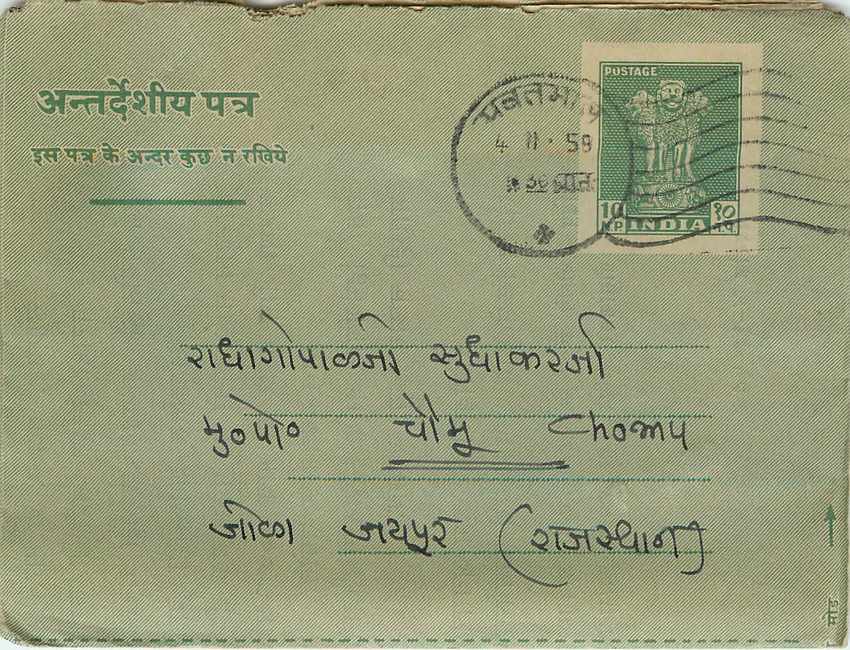 अन्तर्देशीय पत्र
इस पत्र के अन्दर कुछ न रखिये
POSTAGE
यवतमाल
4 11 · 58
10 १०
NP न.पै.
INDIA
राधागोपाळजी सुधाकरजी
मु०पो० चौमू Chomu
जीळा जयपूर (राजस्थान)
मोड